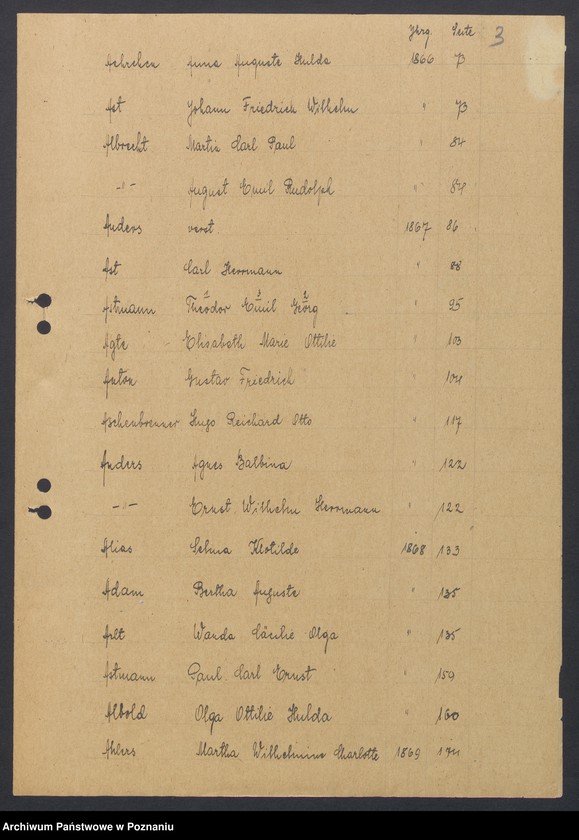 Jhrg. Seite 3
Aehrchen Anna Auguste Hulda 1866 73
Ast Johann Friedrich Wilhelm " 73
Albrecht Martin Carl Paul " 84
-"- August Emil Rudolph " 84
Anders verst. 1867 86
Ast Carl Herrmann " 88
Astmann Theodor Emil Georg " 95
Agte Elisabeth Marie Ottilie " 103
Anton Gustav Friedrich " 104
Aschenbrenner Hugo Reichard Otto " 117
Anders Agnes Balbina " 122
-"- Ernst Wilhelm Herrmann " 122
Alias Selma Klotilde 1868 133
Adam Bertha Auguste " 135
Arlt Wanda Cäcilie Olga " 135
Astmann Paul Carl Ernst " 159
Albold Olga Ottilie Hulda " 160
Ahlers Martha Wilhelmine Charlotte 1869 174
Archiwum Państwowe w Poznaniu